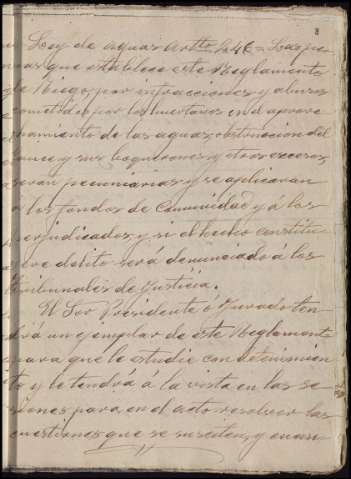 8
Ley de aguas Artto 246 = Las pe-
nas que establece este Reglamento
de Riego, por infracciones y abusos
cometidos por los huertanos en el aprove
chamiento de las aguas, obstruccion del
cauce y sus boquerones y otros excesos,
seran pecuniarias y se aplicaran
a los fondos de Comunidad y á los
perjudicados, y si el hecho constitu
yere delito será denunciado á los
tribunales de Justicia.
El Sor Presidente ó Jurado ten
drá un ejemplar de este Reglamento
para que le estudie con detenimien
to y le tendrá a la vista en las se
siones para en el acto resolver las
cuestiones que se susciten, y en